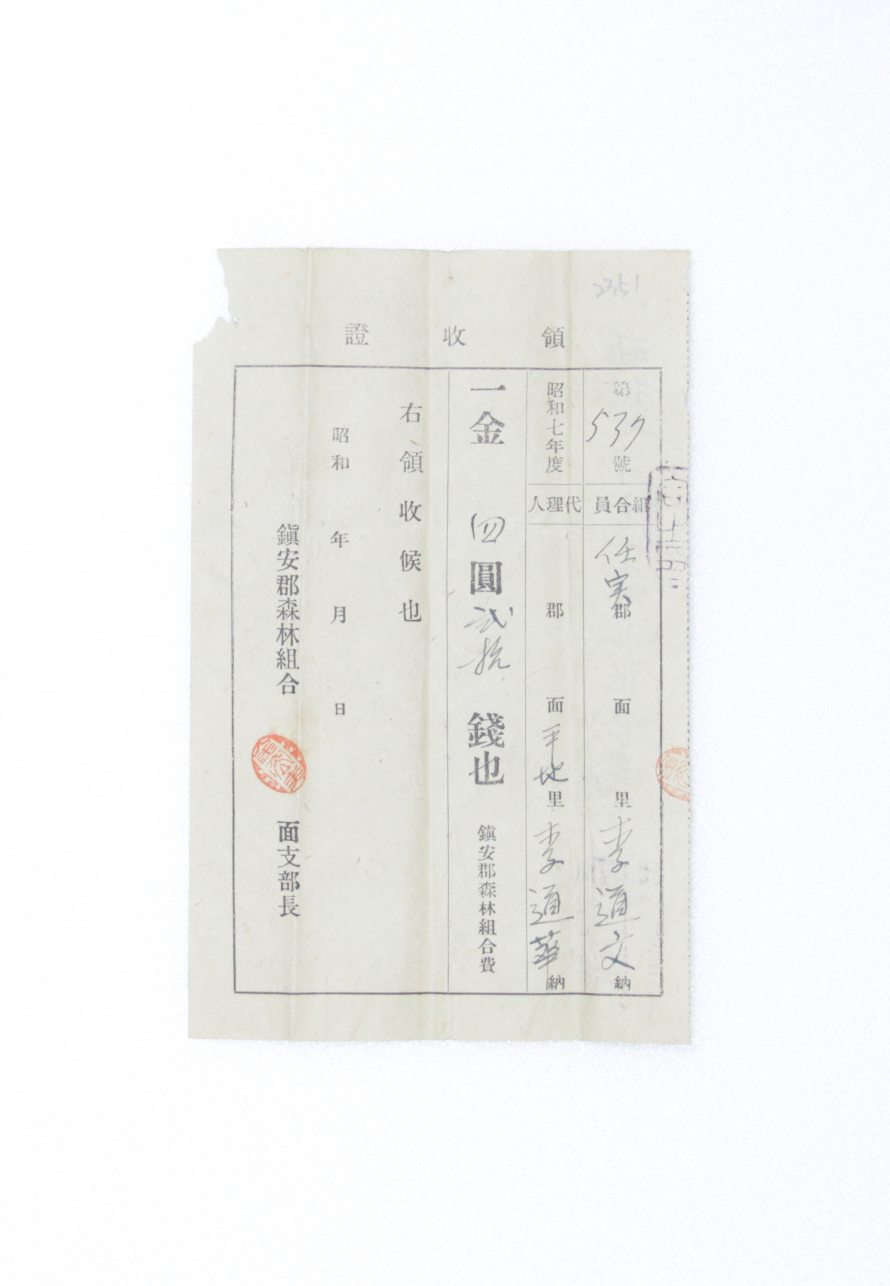 2351
領收證
第537號
組合員
任実郡 面 里 李道文 納
昭和七年度
代理人
郡 面 平地里 李道華 納
一金 四圓弐拾 錢也 鎭安郡森林組合費
右領收候也
昭和 年 月 日
鎭安郡森林組合 面支部長